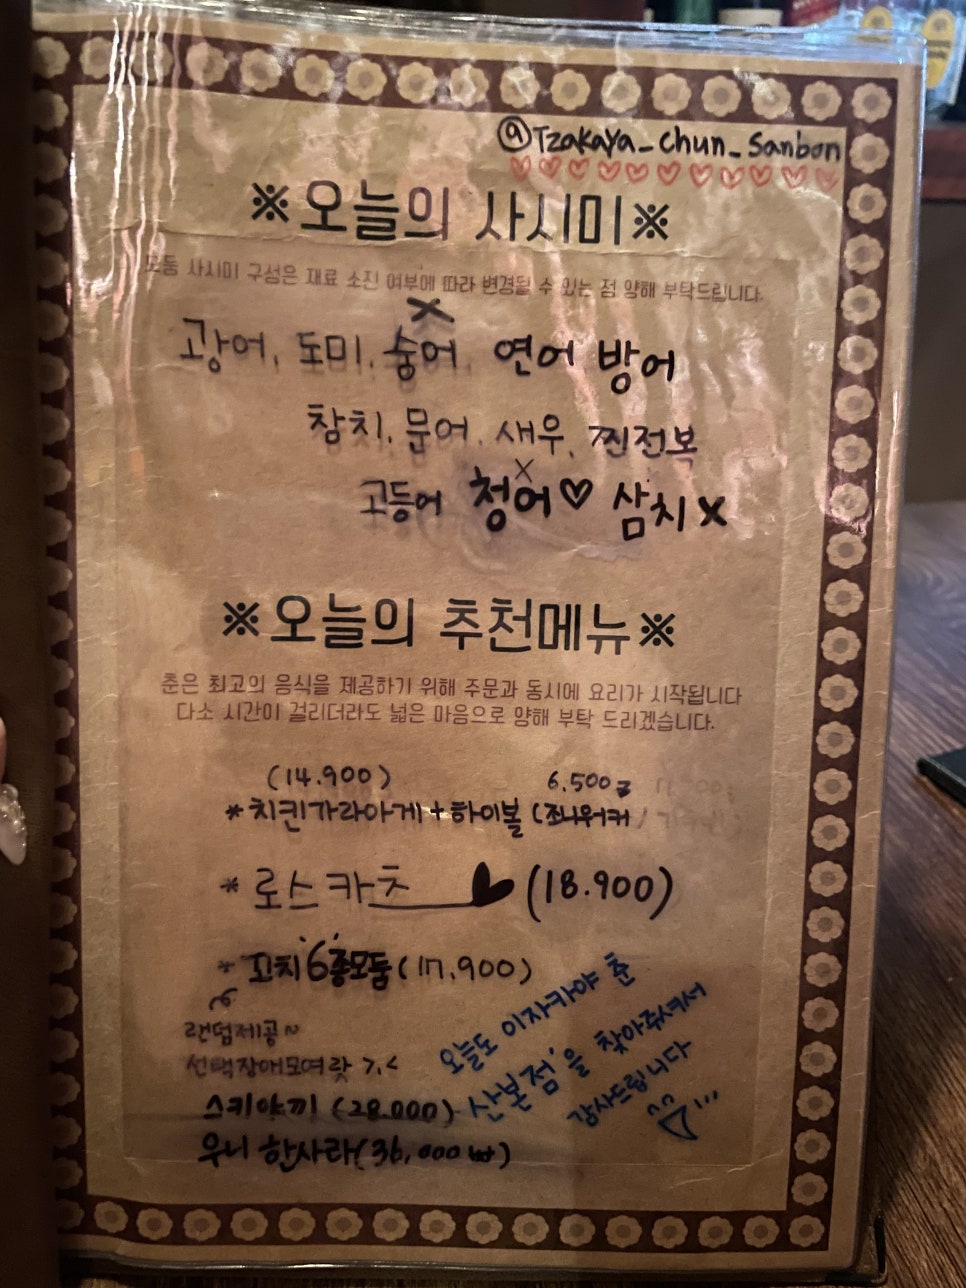 @Izakaya_chun_sanbon
※오늘의 사시미※
모둠 사시미 구성은 재료 소진 여부에 따라 변경될 수 있는 점 양해 부탁드립니다.
X
광어, 도미, 숭어, 연어 방어
참치, 문어, 새우, 찐전복
X
고등어 청어♡ 삼치 X
※오늘의 추천메뉴※
춘은 최고의 음식을 제공하기 위해 주문과 동시에 요리가 시작됩니다
다소 시간이 걸리더라도 넓은 마음으로 양해 부탁 드리겠습니다.
(14.900) 6.500
*치킨가라아게+하이볼 (조니워커/
*로스카츠 (18.900)
*꼬치 6종모둠 (17,900)
랜덤제공~
선택장애모여랏 >.<
스키야끼 (28.000)
우니 한사라(36,000₩)
오늘도 이자카야 춘
'산본점'을 찾아주셔서
감사드립니다